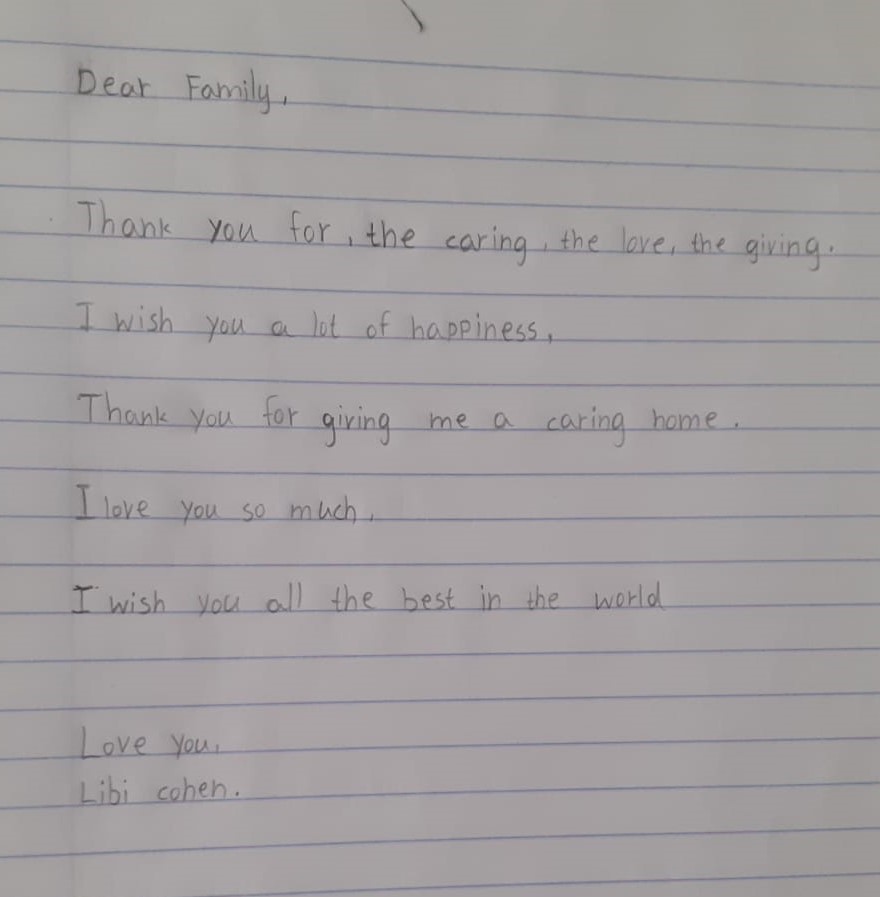 Dear Family,
Thank you for, the caring, the love, the giving.
I wish you a lot of happiness,
Thank you for giving me a caring home.
I love you so much,
I wish you all the best in the world
Love you,
Libi cohen.